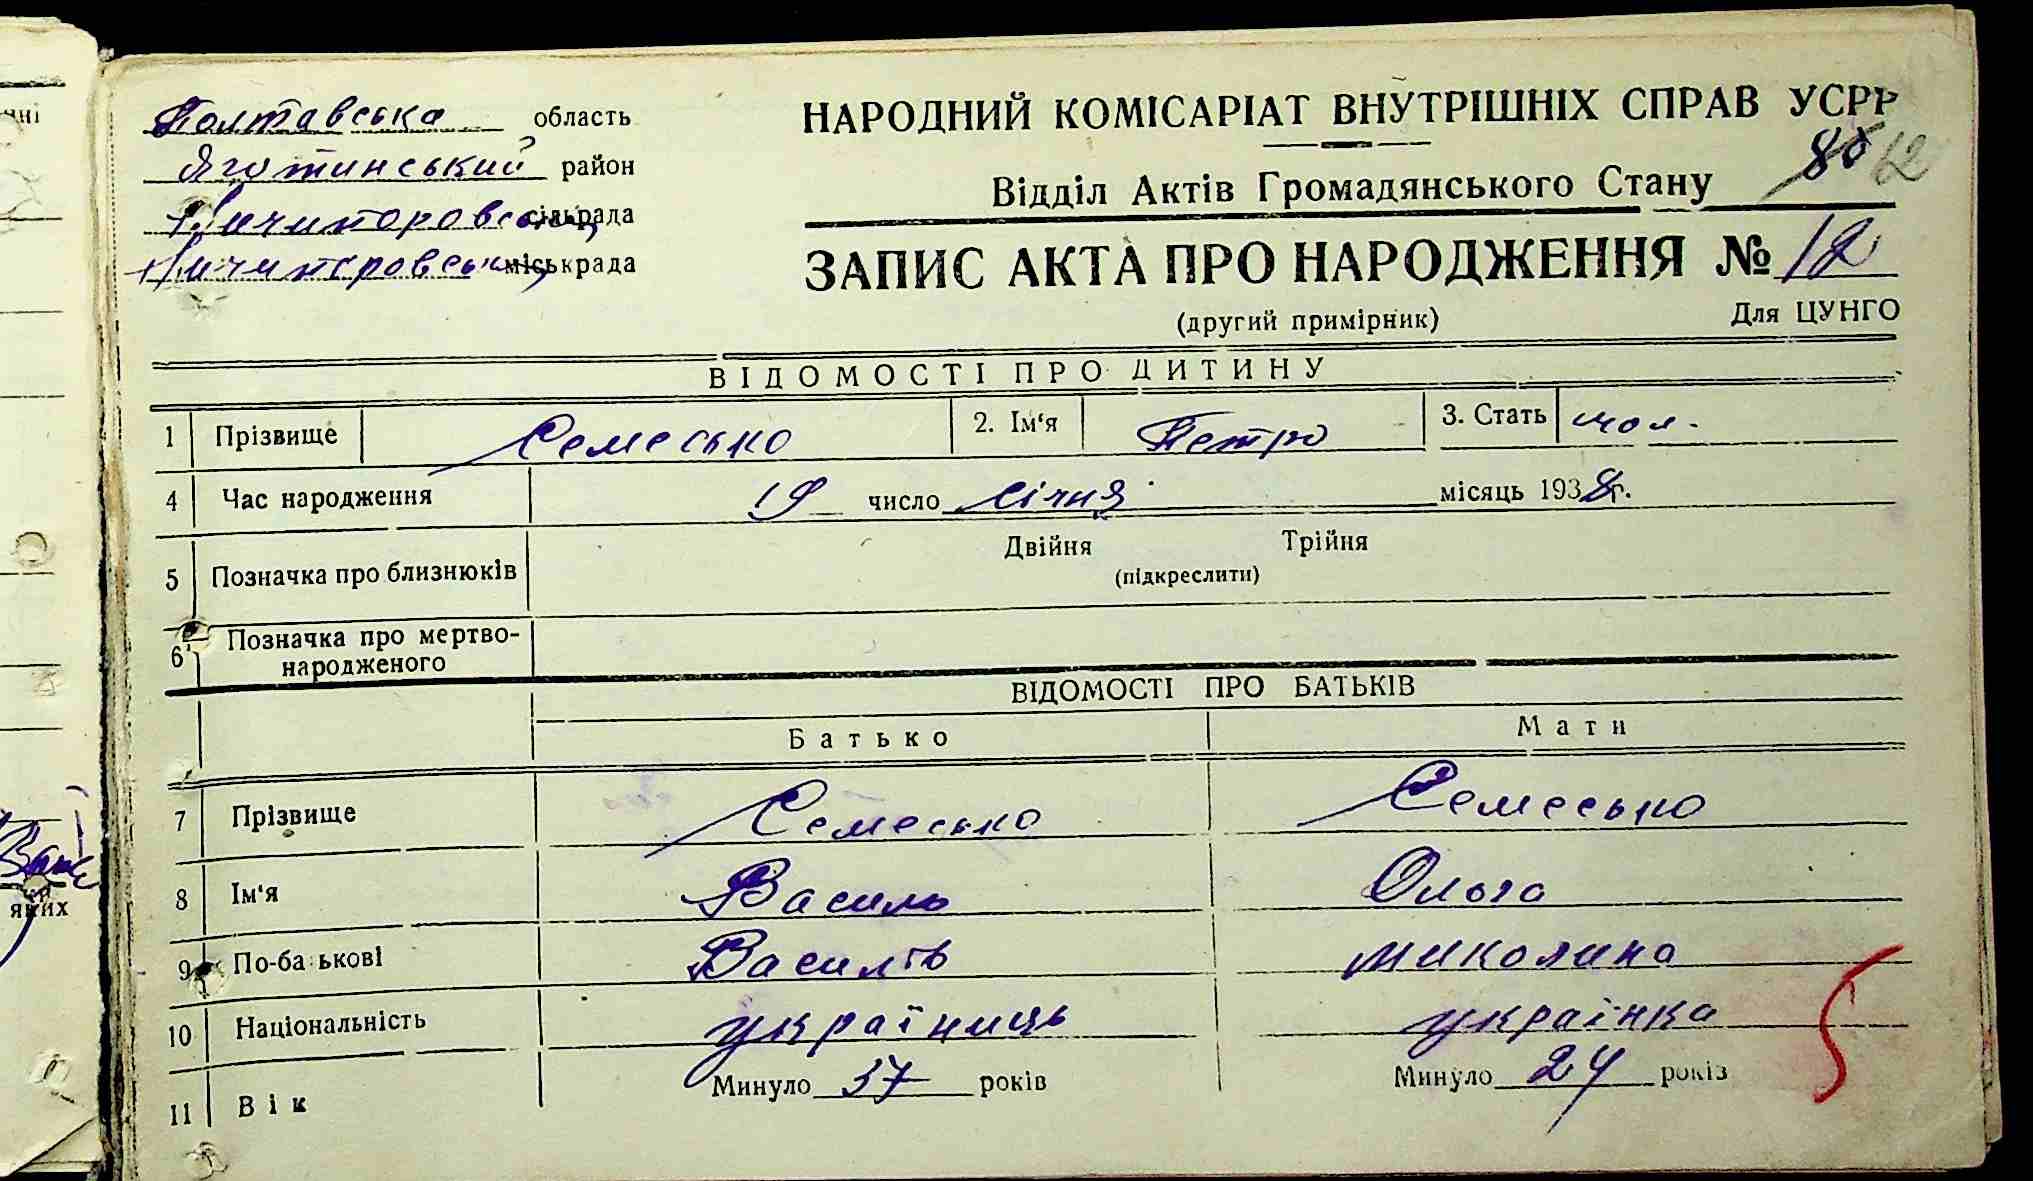 Полтавська область
Яготинський район
Ничипоровська сільрада
Ничипоровська міськрада
НАРОДНИЙ КОМІСАРІАТ ВНУТРІШНІХ СПРАВ УСРР
Відділ Актів Громадянського Стану
80 12
ЗАПИС АКТА ПРО НАРОДЖЕННЯ № 12
(другий примірник) Для ЦУНГО
ВІДОМОСТІ ПРО ДИТИНУ
1 Прізвище Семесько 2. Ім‘я Петро 3. Стать чол.
4 Час народження 19 число січня місяць 1938 г.
5 Позначка про близнюків Двійня Трійня
(підкреслити)
6 Позначка про мертво-
народженого
ВІДОМОСТІ ПРО БАТЬКІВ
Батько Мати
7 Прізвище Семесько Семесько
8 Ім‘я Василь Ольга
9 По-ба ькові Василів миколина
10 Національність україниць українка
11 Вік Минуло 37 років Минуло 24 років
яких